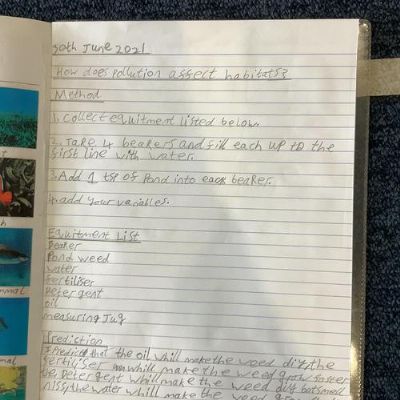 30th June 2021
How does pollution affect habitats?
Method
1. Collect equitment listed below.
2. Take 4 beakers and fill each up to the
first line with water.
3. Add 1 tsp of Pond into each beaker.
4. add your variables.
Equitment List
Beaker
Pond weed
water
fertiliser
Detergent
oil
measuring Jug
Prediction
I Predict that the oil whill make the weed die, the
fertiliser whill make the weed grow faster
the Detergent whill make the weed but smell
the water whill make the weed